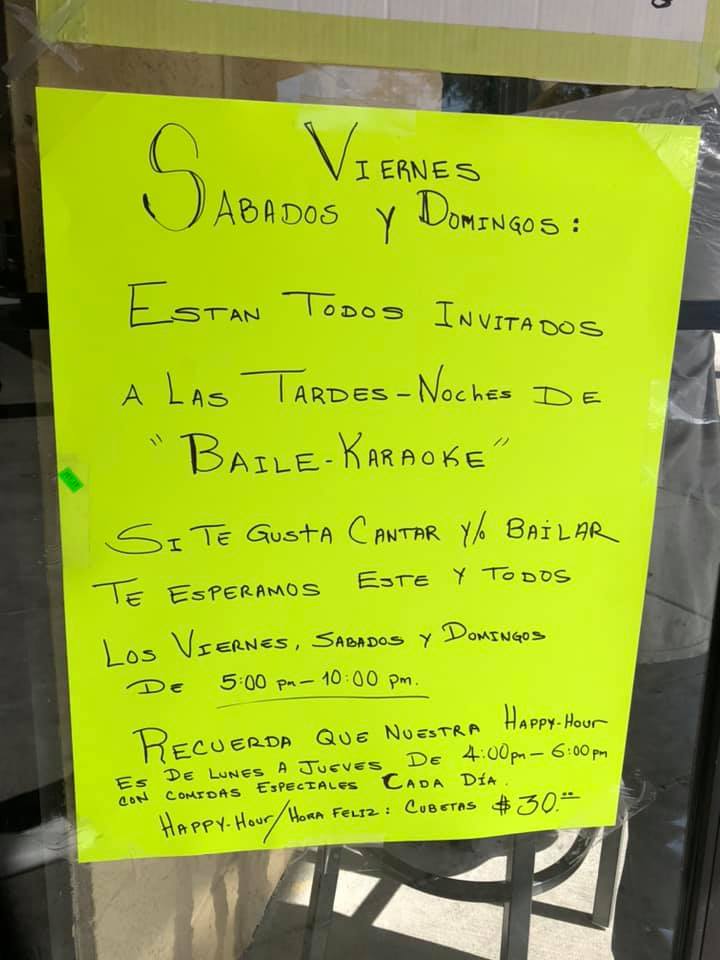 VIERNES
SABADOS Y DOMINGOS:
ESTAN TODOS INVITADOS
A LAS TARDES-NOCHES DE
"BAILE-KARAOKE"
SI TE GUSTA CANTAR Y/o BAILAR
TE ESPERAMOS ESTE Y TODOS
LOS VIERNES, SABADOS Y DOMINGOS
DE 5:00 pm - 10:00 pm.
RECUERDA QUE NUESTRA HAPPY-HOUR
ES DE LUNES A JUEVES DE 4:00pm - 6:00pm
CON COMIDAS ESPECIALES CADA DÍA.
HAPPY-HOUR/HORA FELIZ: CUBETAS $30.00